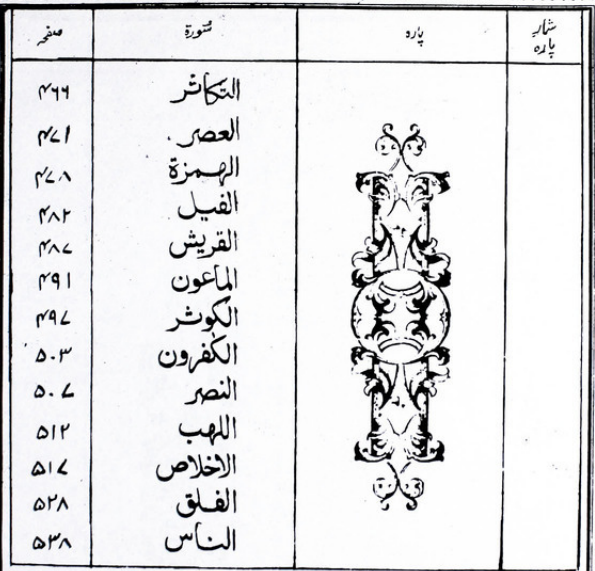 شمار پارہ پارہ سُورۃ صفحہ
التکاثر ۴۶۶
العصر ۴۷۱
الهمزة ۴۷۸
الفیل ۴۸۲
القریش ۴۸۷
الماعون ۴۹۱
الکوثر ۴۹۷
الکفرون ۵۰۳
النصر ۵۰۷
اللهب ۵۱۲
الاخلاص ۵۱۷
الفلق ۵۲۸
الناس ۵۳۸